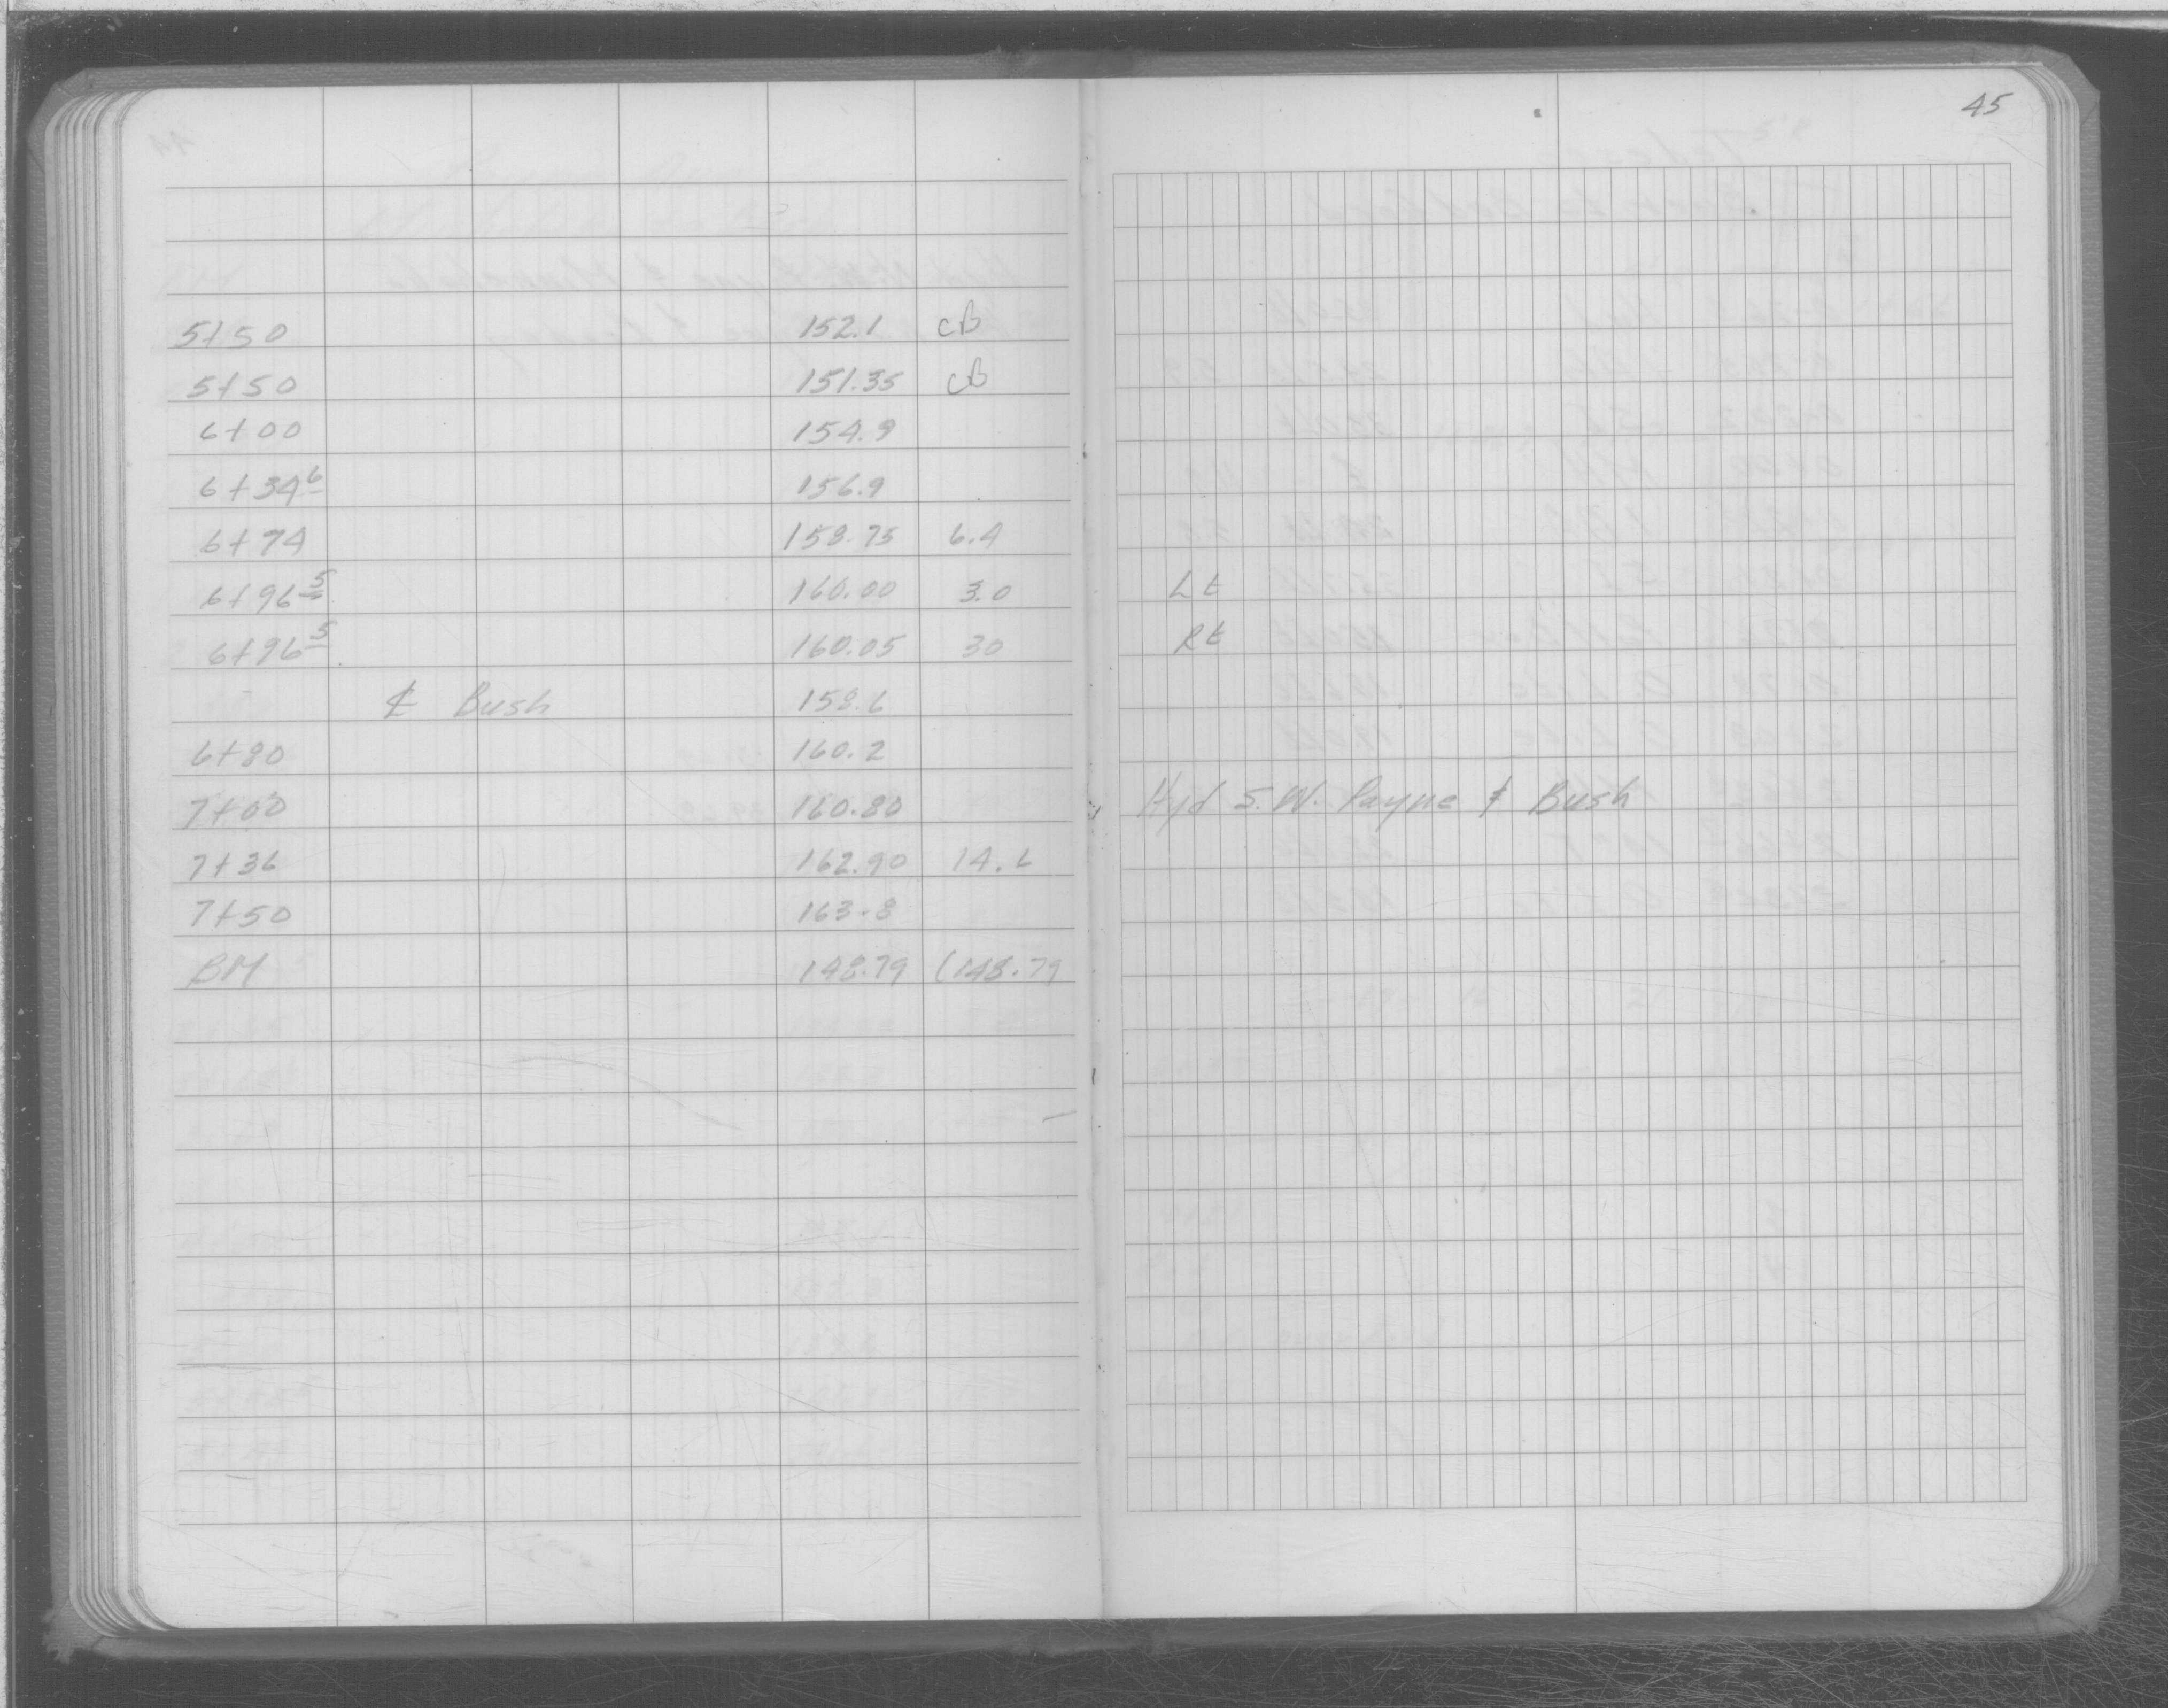 45
5+50 152.1 CB
5+50 151.35 CB
6+00 154.9
6+34 6 156.9
6+74 158.75 6.4
6+96 5 160.00 3.0 Lt
6+96 5 160.05 30 Rt
℄ Bush 158.6
6+80 160.2
7+00 160.80 Hyd S.W. Payne & Bush
7+36 162.90 14.6
7+50 163.8
BM 148.79 (148.79